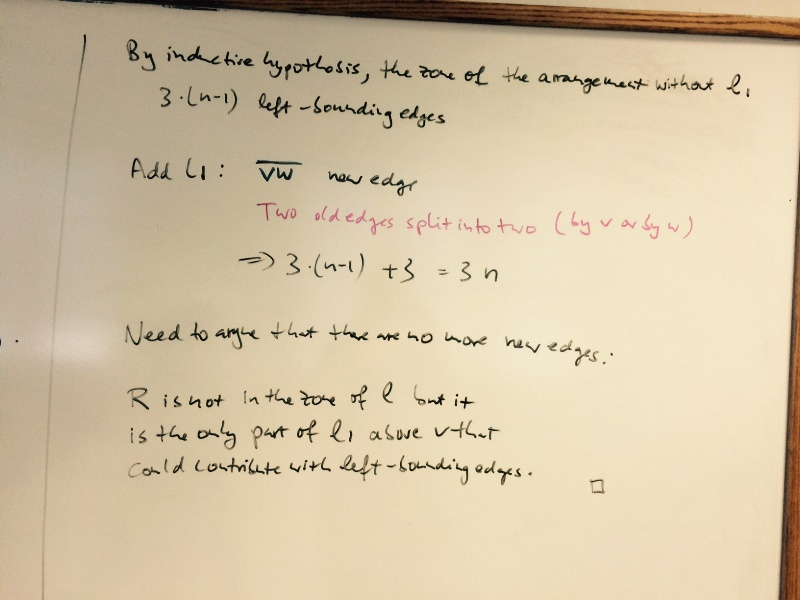 By inductive hypothesis, the zone of the arrangement without l₁
3·(n-1) left-bounding edges
Add l₁: V̅W̅ new edge
Two old edges split into two (by v or by w)
=> 3·(n-1) +3 = 3n
Need to argue that there are no more new edges:
R is not in the zone of l but it
is the only part of l₁ above v that
could contribute with left-bounding edges. □